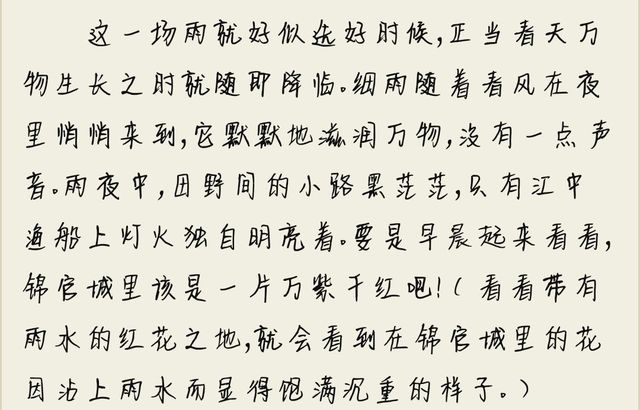 这一场雨就好似选好时候,正当春天万
物生长之时就随即降临。细雨随着春风在夜
里悄悄来到,它默默地滋润万物,没有一点声
音。雨夜中,田野间的小路黑茫茫,只有江中
渔船上灯火独自明亮着。要是早晨起来看看,
锦官城里该是一片万紫千红吧!(看看带有
雨水的红花之地,就会看到在锦官城里的花
因沾上雨水而显得饱满沉重的样子。)